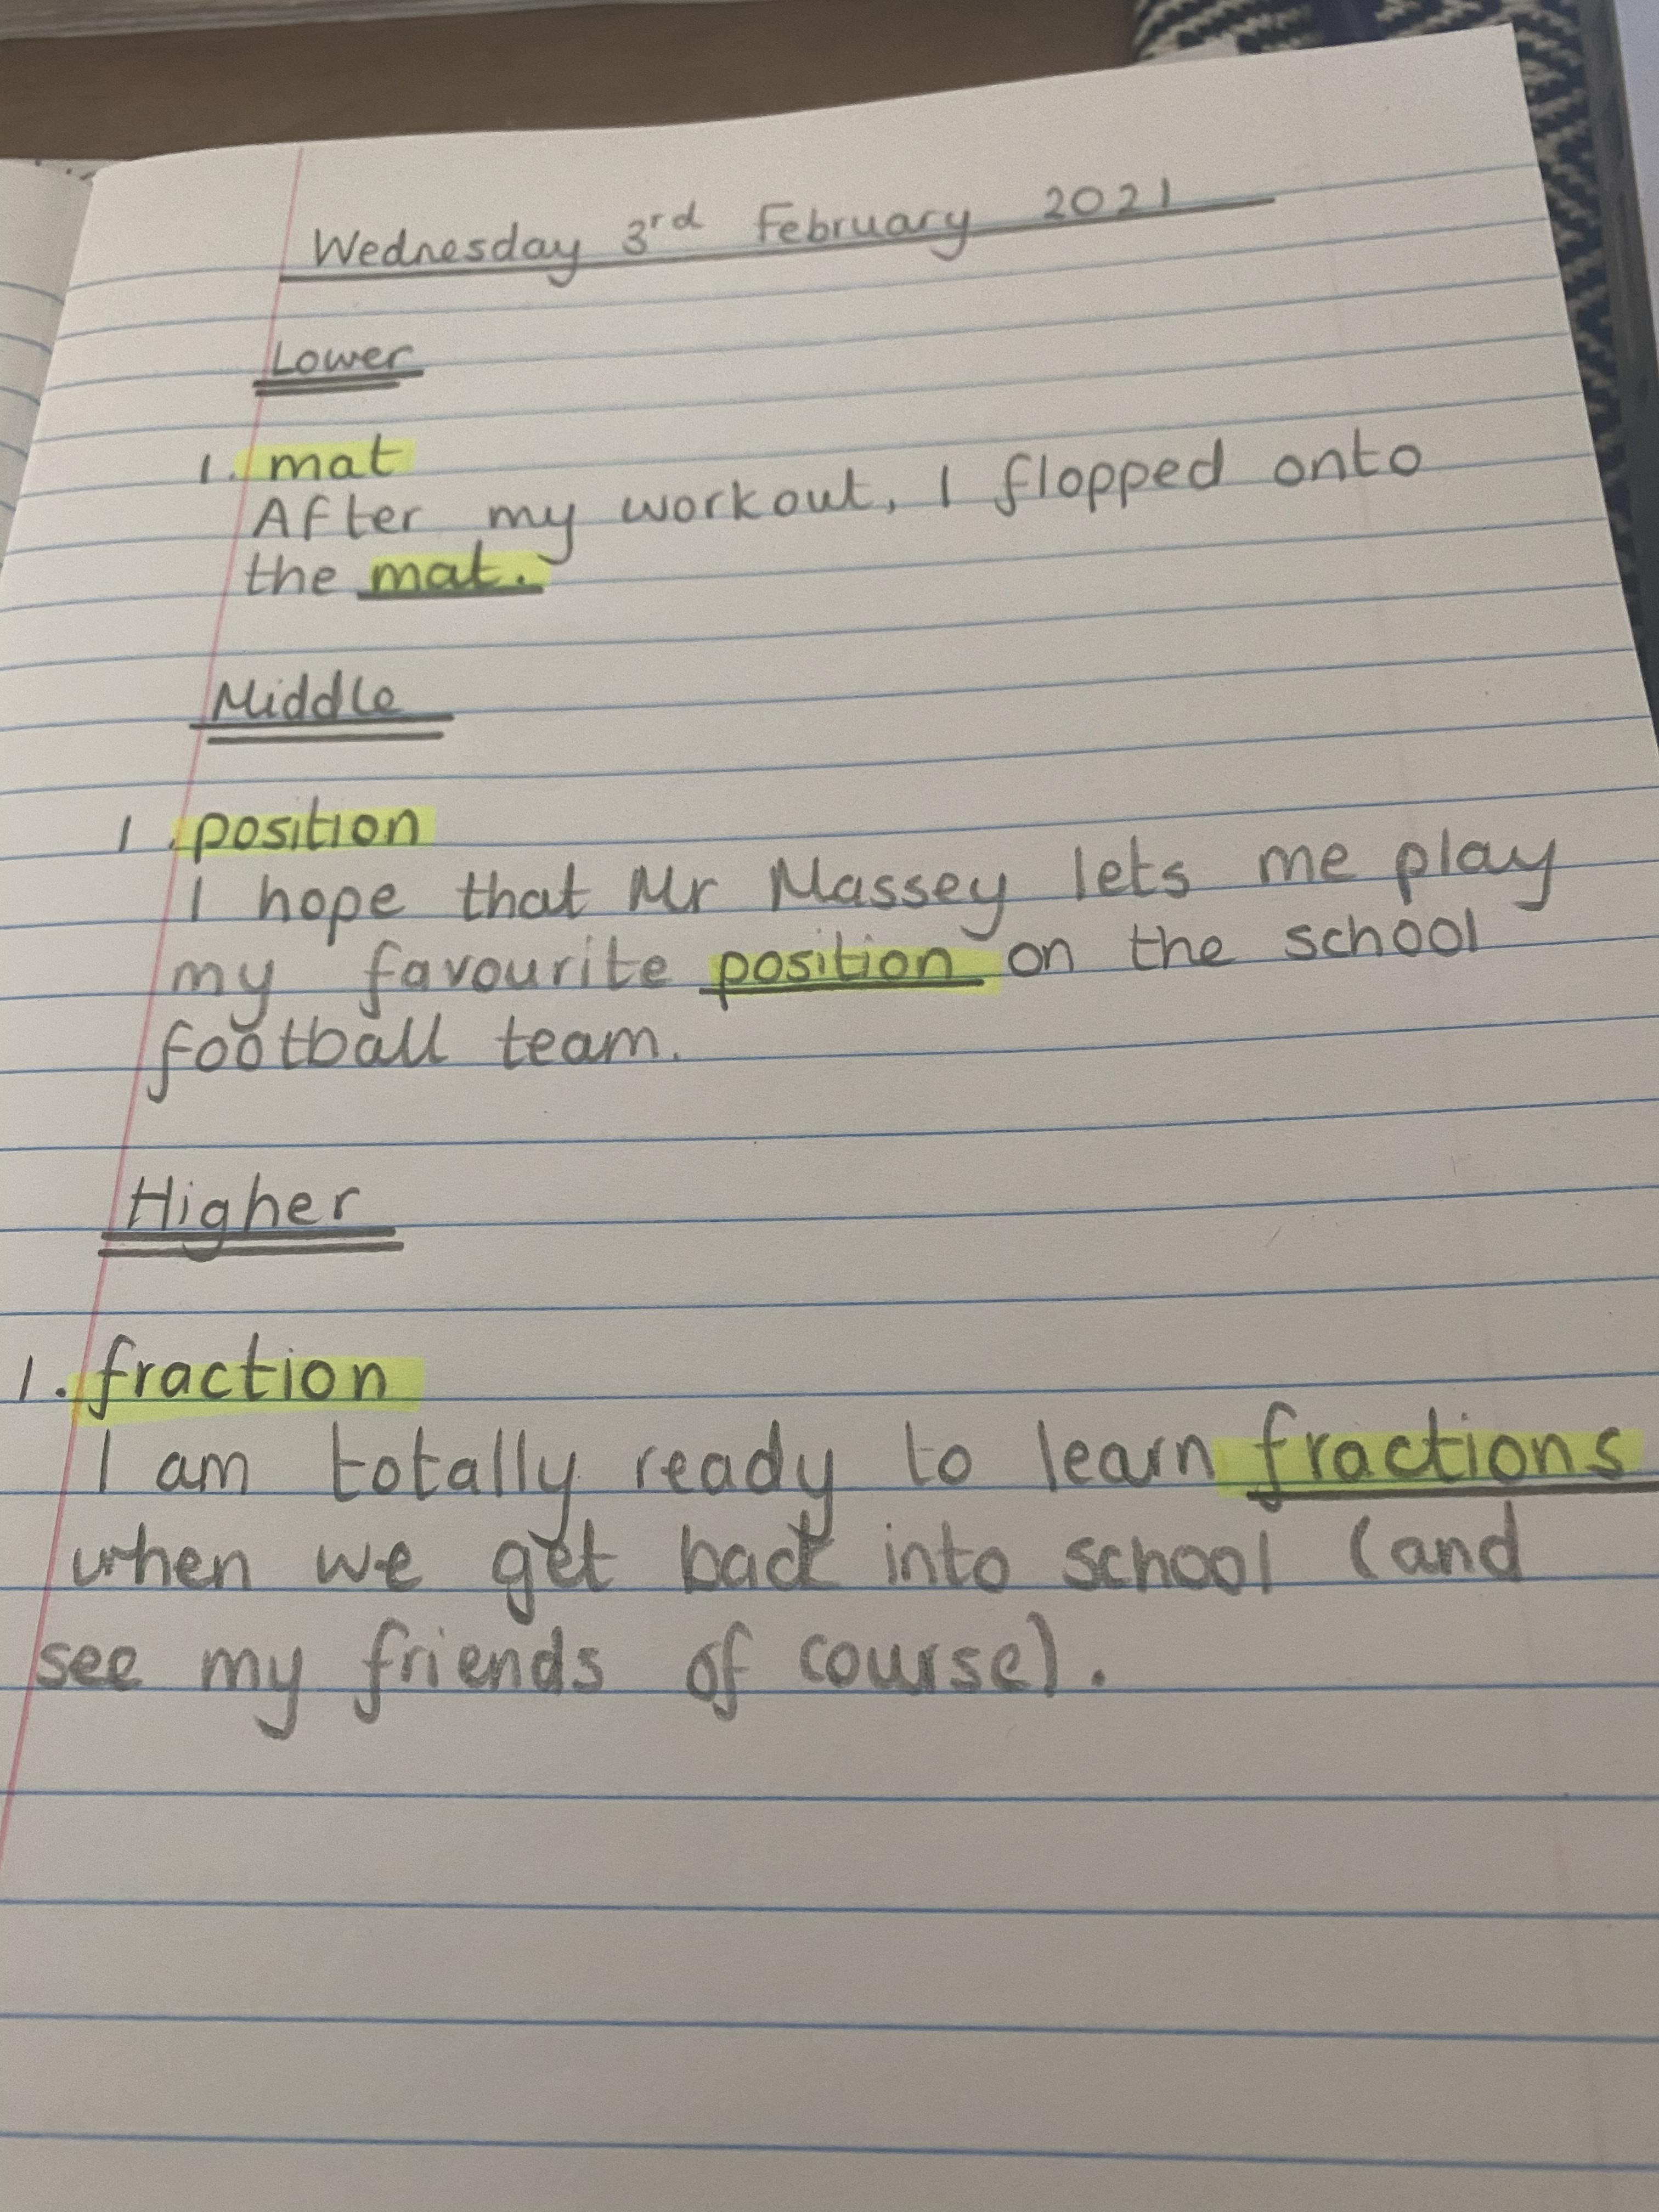 Wednesday 3rd February 2021
Lower
1. mat
After my workout, I flopped onto
the mat.
Middle
1. position
I hope that Mr Massey lets me play
my favourite position on the school
football team.
Higher
1. fraction
I am totally ready to learn fractions
when we get back into school (and
see my friends of course).